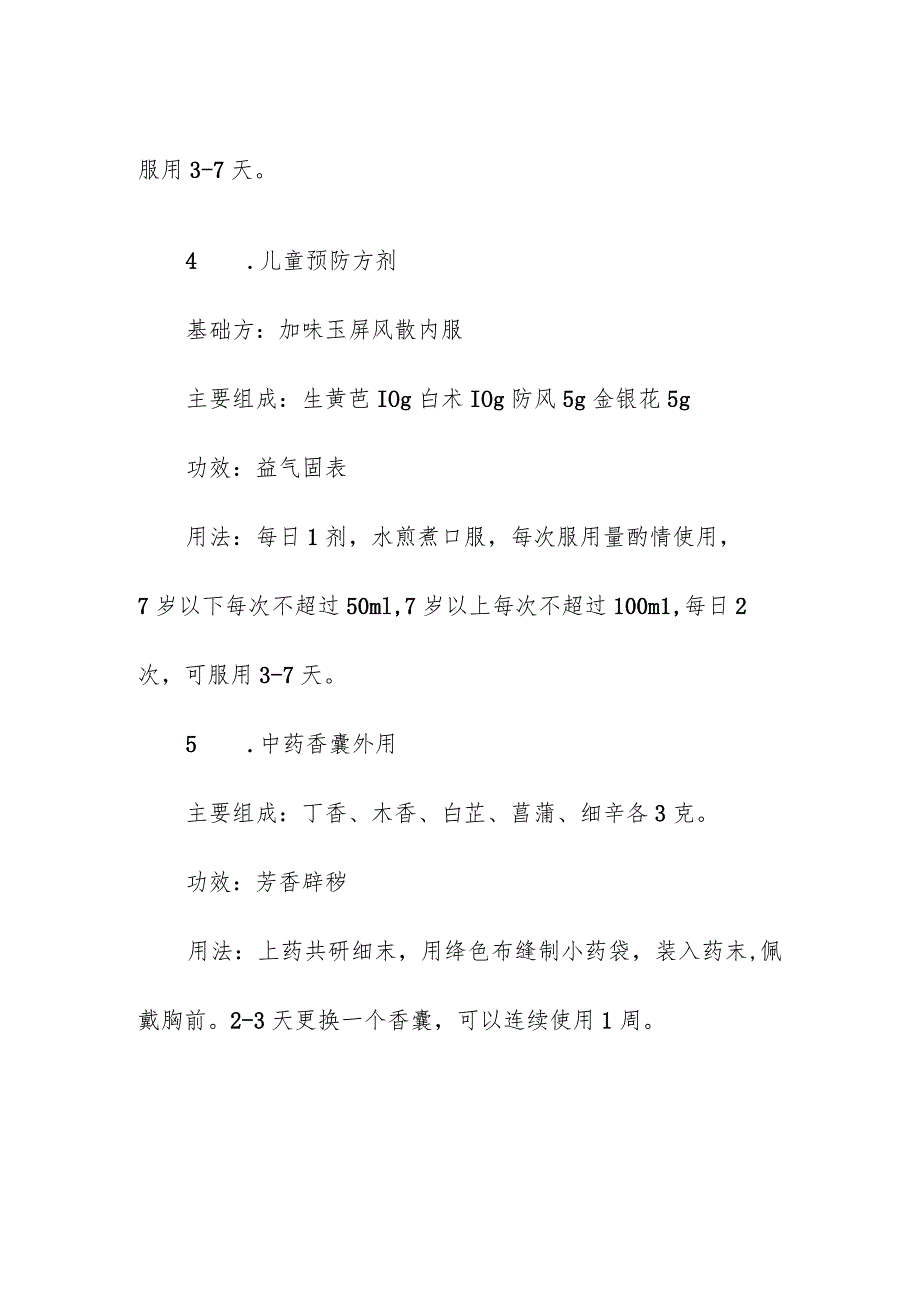 服用3-7天。
4 .儿童预防方剂
基础方：加味玉屏风散内服
主要组成：生黄芭IOg白术IOg防风5g金银花5g
功效：益气固表
用法：每日1剂，水煎煮口服，每次服用量酌情使用，
7岁以下每次不超过50ml,7岁以上每次不超过100ml,每日2
次，可服用3-7天。
5 .中药香囊外用
主要组成：丁香、木香、白芷、菖蒲、细辛各3克。
功效：芳香辟秽
用法：上药共研细末，用绛色布缝制小药袋，装入药末,佩
戴胸前。2-3天更换一个香囊，可以连续使用1周。